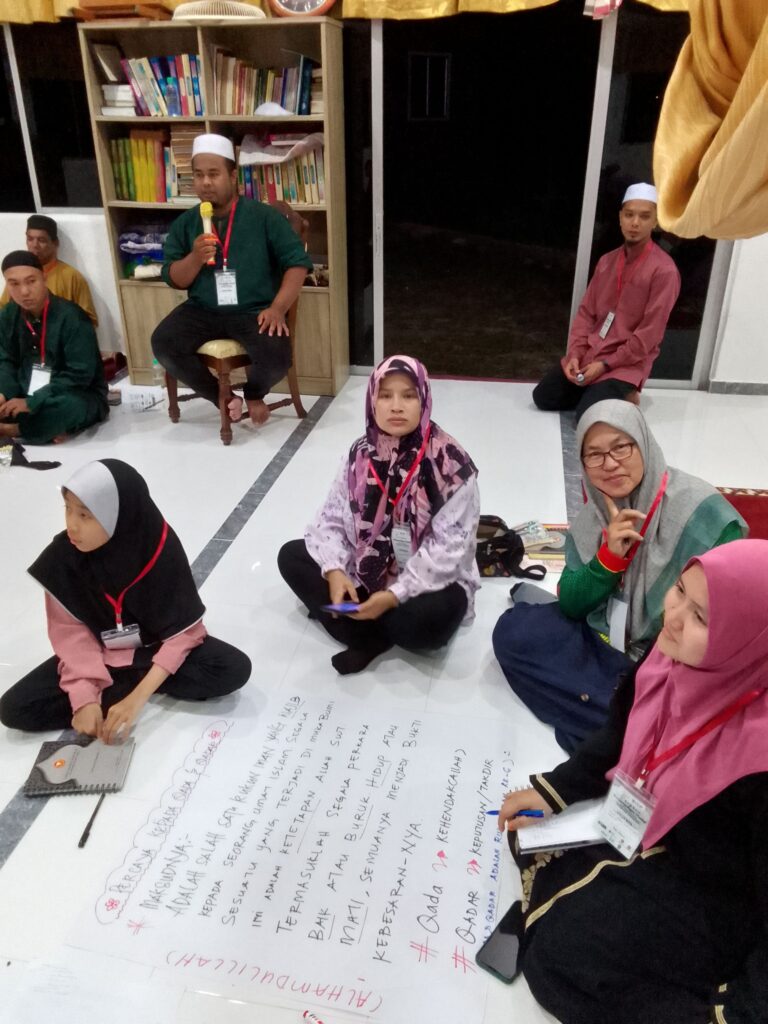 PERCAYA KEPADA QADA & QADAR
# MAKSUDNYA:-
ADALAH SALAH SATU RUKUN IMAN YANG WAJIB
KEPADA SEORANG UMAT ISLAM. SEGALA
SESUATU YANG TERJADI DI MUKA BUMI
INI ADALAH KETETAPAN ALLAH SWT
TERMASUKLAH SEGALA PERKARA
BAIK ATAU BURUK HIDUP ATAU
MATI, SEMUANYA MENJADI BUKTI
KEBESARAN-NYA
# Qada KEHENDAK(ALLAH)
# QADAR KEPUTUSAN/TAKDIR
QADAR ADALAH
(ALHAMDULILLAH)